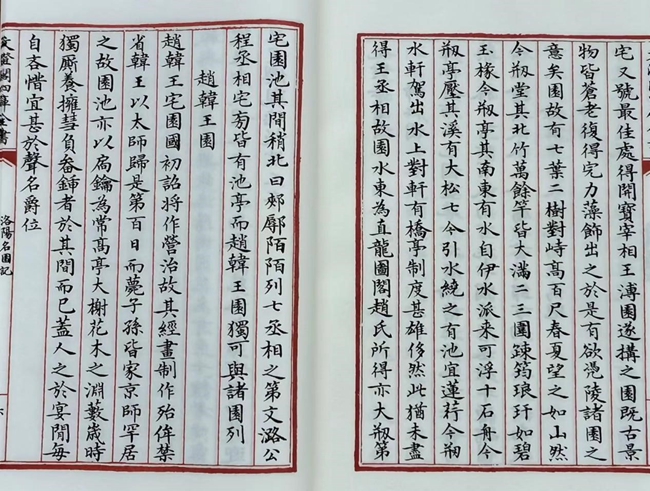 宅又號最佳處得開寳宰相王溥園遂搆之園既古景
物皆蒼老復得完力藻飾出之於是有欲慿陵諸園之
意矣園故有七葉二樹對峙髙百尺春夏望之如山然
今剏堂其北竹萬餘竿皆大滿二三圍踈筠琅玕如碧
玉椽今剏亭其南東有水自伊水派来可浮十石舟今
剏亭壓其溪有大松七今引水繞之有池宜蓮荇今剏
水軒駕出水上對軒有橋亭制度甚雄侈然此猶未盡
得王丞相故園水東為直龍圖閣趙氏所得亦大剏第
宅園池其間稍北曰郟鄏陌陌列七丞相之第文潞公
程丞相宅㫄皆有池亭而趙韓王園獨可與諸園列
趙韓王園
趙韓王宅園國初詔將作營治故其經畫制作殆侔禁
省韓王以太師歸是第百日而薨子孫皆家京師罕居
之故園池亦以扃鑰為常髙亭大榭花木之淵藪歳時
獨厮養擁彗負畚鍤者於其間而已蓋人之於宴閒每
自吝惜宜甚於聲名爵位
閣四庫全書
洛陽名園記
六